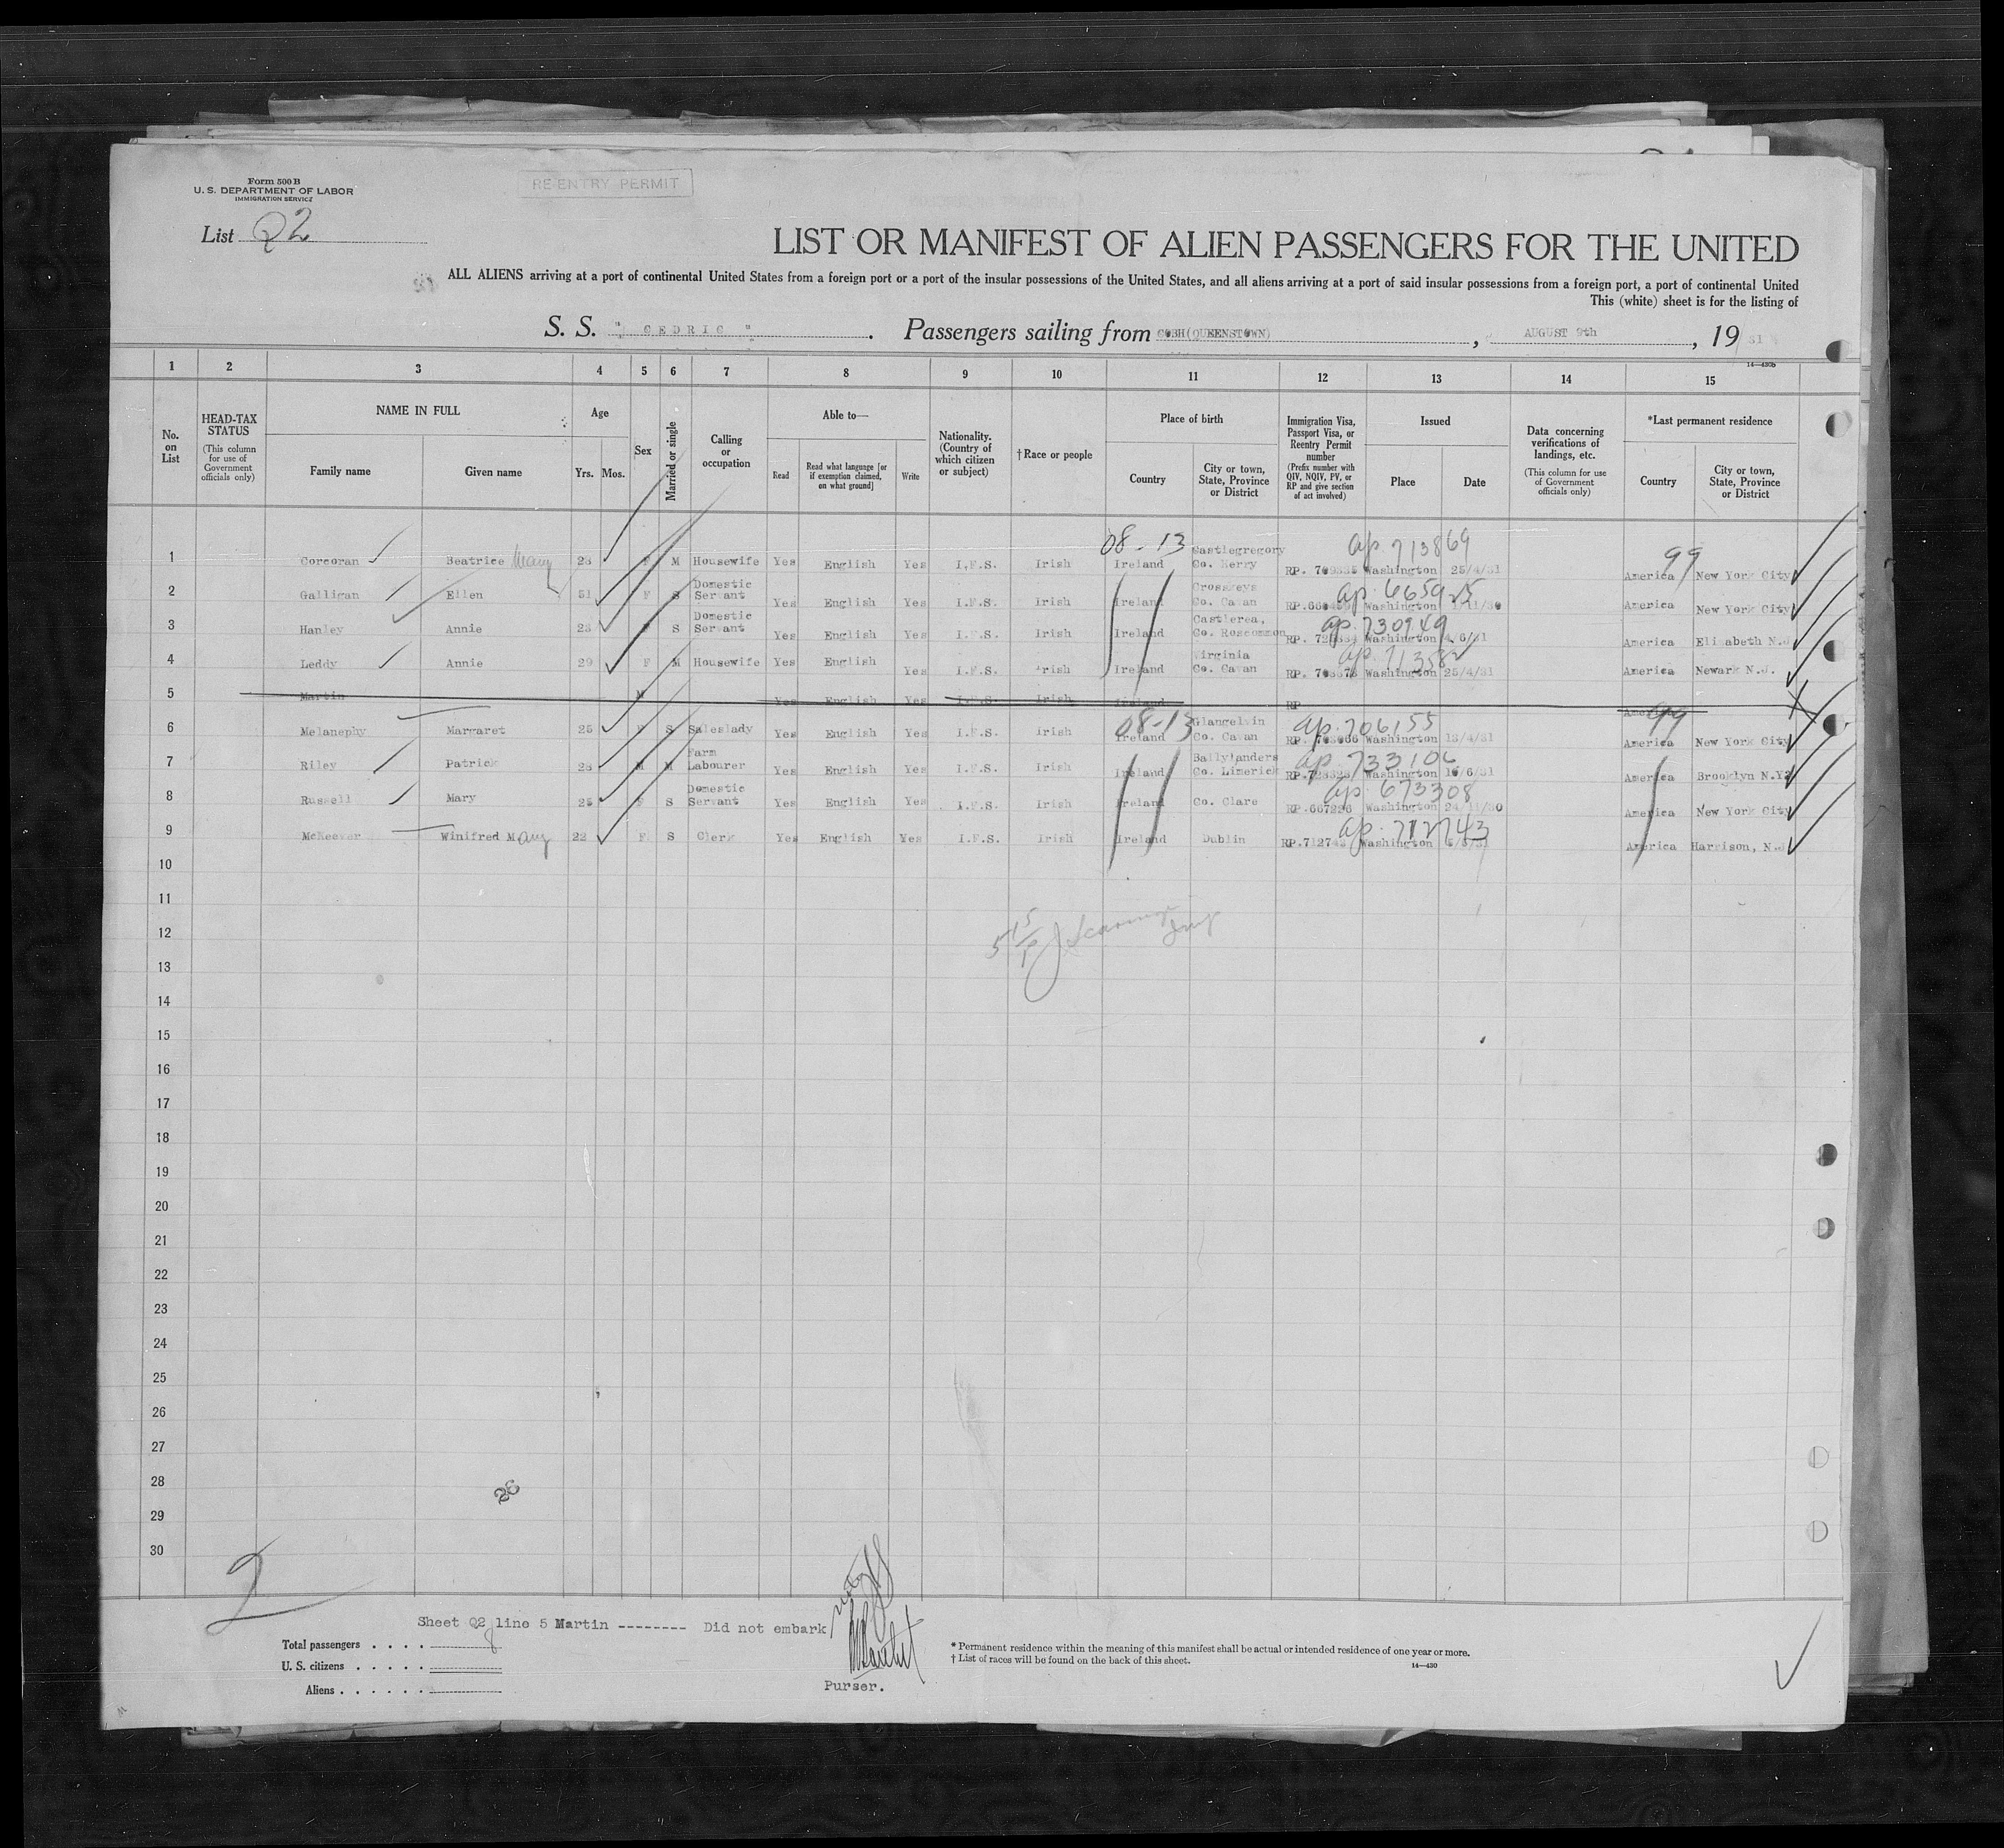 Form 500 B
U. S. DEPARTMENT OF LABOR
IMMIGRATION SERVICE
RE-ENTRY PERMIT
List Q2
LIST OR MANIFEST OF ALIEN PASSENGERS FOR THE UNITED
ALL ALIENS arriving at a port of continental United States from a foreign port or a port of the insular possessions of the United States, and all aliens arriving at a port of said insular possessions from a foreign port, a port of continental United
This (white) sheet is for the listing of
S. S. " CEDRIC " . Passengers sailing from COBH(QUEENSTOWN) , AUGUST 9th , 19 31
14—430b
1 2 3 4 5 6 7 8 9 10 11 12 13 14 15
No. on List
HEAD-TAX STATUS (This column for use of Government officials only)
NAME IN FULL
Family name Given name
Age
Yrs. Mos.
Sex
Married or single
Calling or occupation
Able to—
Read Read what language [or if exemption claimed, on what ground] Write
Nationality. (Country of which citizen or subject)
†Race or people
Place of birth
Country City or town, State, Province or District
Immigration Visa, Passport Visa, or Reentry Permit number (Prefix number with QIV, NQIV, PV, or RP and give section of act involved)
Issued
Place Date
Data concerning verifications of landings, etc. (This column for use of Government officials only)
*Last permanent residence
Country City or town, State, Province or District
08-13 ap. 713869 99
1 Corcoran Beatrice Mary 28 F M Housewife Yes English Yes I.F.S. Irish Ireland Castlegregory Co. Kerry RP. Washington 25/4/31 America New York City
2 Galligan Ellen 51 F S Domestic Servant Yes English Yes I.F.S. Irish Ireland Crosskeys Co. Cavan ap. 665925 Washington America New York City
3 Hanley Annie 28 F S Domestic Servant Yes English Yes I.F.S. Irish Ireland Castlerea, Co. Roscommon ap. 730949 RP. Washington 4/6/31 America Elizabeth N.J.
4 Leddy Annie 29 F M Housewife Yes English Yes I.F.S. Irish Ireland Virginia Co. Cavan RP. Washington 25/4/31 America Newark N.J.
5 Martin M Yes English Yes I.F.S. Irish Ireland RP America
08-13 99
6 Melanephy Margaret 25 F S Saleslady Yes English Yes I.F.S. Irish Ireland Glangelvin Co. Cavan ap. 706155 RP. Washington 13/4/31 America New York City
7 Riley Patrick 28 M M Farm Labourer Yes English Yes I.F.S. Irish Ireland Ballylanders Co. Limerick ap. 733106 Washington America Brooklyn N.Y.
8 Russell Mary 25 F S Domestic Servant Yes English Yes I.F.S. Irish Ireland Co. Clare ap. 673308 RP.667226 Washington America New York City
9 McKeever Winifred Mary 22 F S Clerk Yes English Yes I.F.S. Irish Ireland Dublin ap. 712743 RP.712743 Washington America Harrison, N.J.
10
11
12
13
14
15
16
17
18
19
20
21
22
23
24
25
26
27
28
29
30
26
2
Sheet Q2 line 5 Martin -------- Did not embark
Total passengers . . . . 8
U. S. citizens . . . . .
Aliens . . . . . .
Purser.
* Permanent residence within the meaning of this manifest shall be actual or intended residence of one year or more.
† List of races will be found on the back of this sheet.
14—430